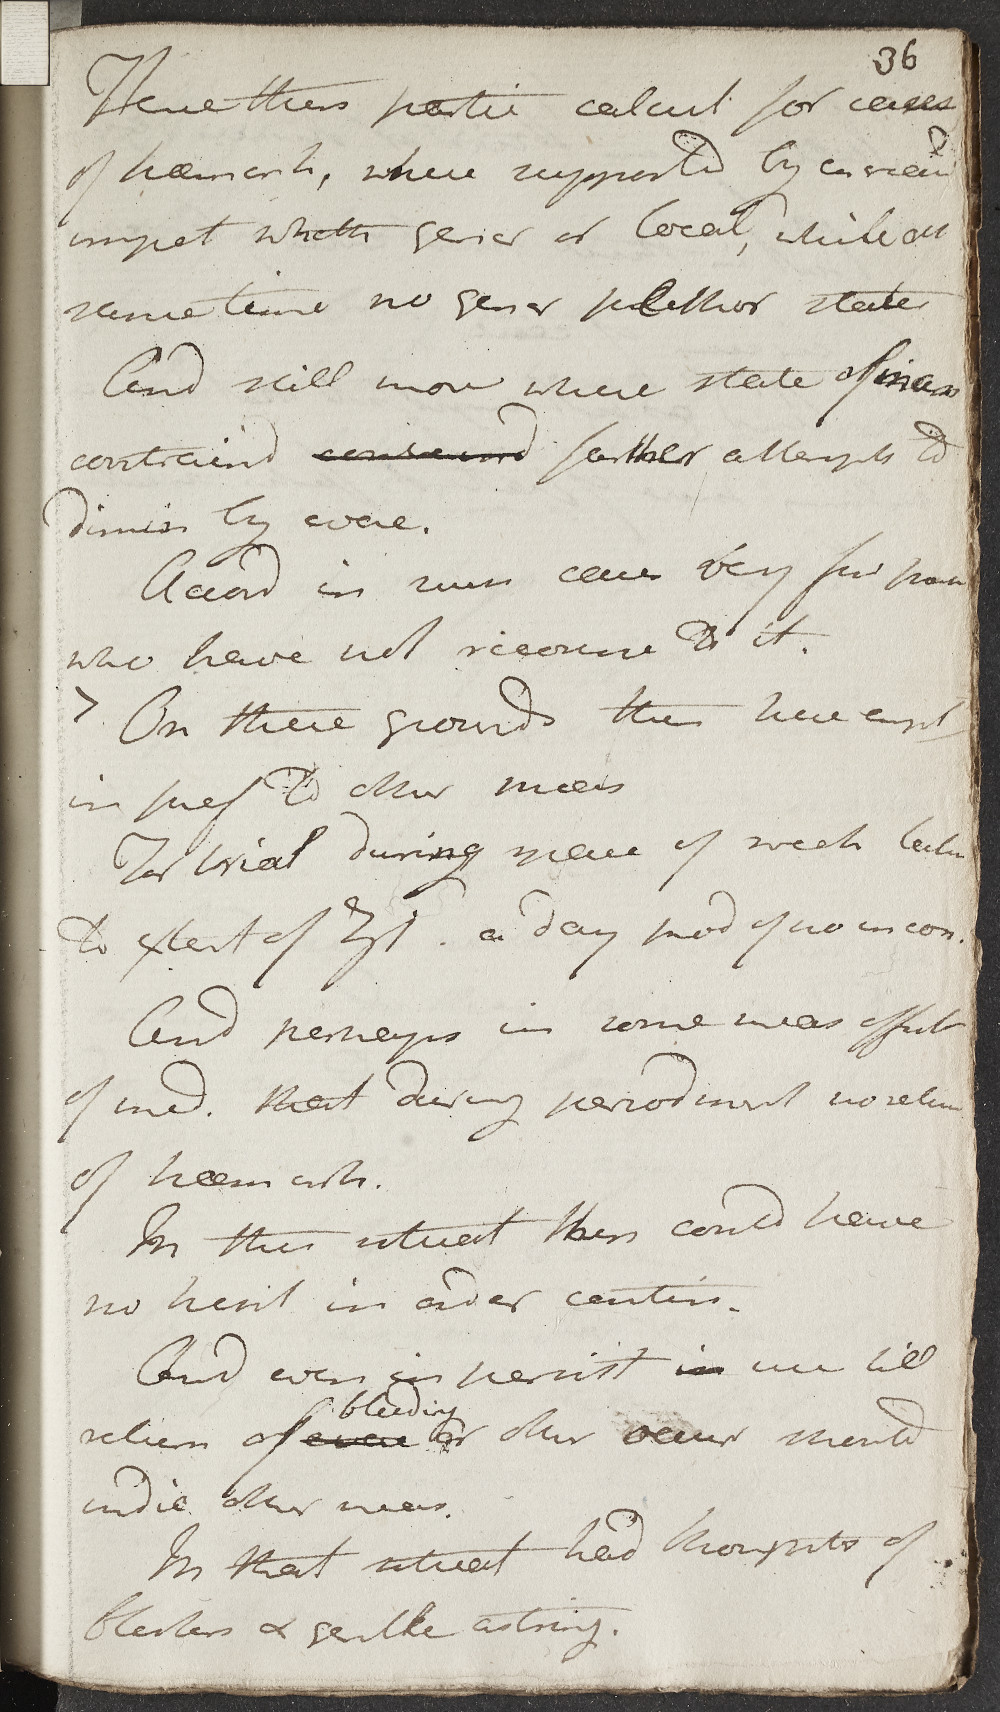 36
Have thers partic calcul for cases
of haemorrh, where supported by increas
impet wheth gener or local, while at
same time no gener plethor state
And still more where state of inan
contraind further attempts to
dimin by evac.
Accord in such cases very few prac
who have not recourse to it.
On these grounds then have empl
in pref to other meas
For trial during space of week taken
to extent of ʒj. a day prod of no incon.
And perhaps in some meas effect
of med. that during period ment no return
of haemorrh.
In this situat then could have
no hesit in order contin.
And even in persist in use till
return of bleeding or other occur should
indic other meas.
In that situat had thoughts of
blisters & gentle astring.